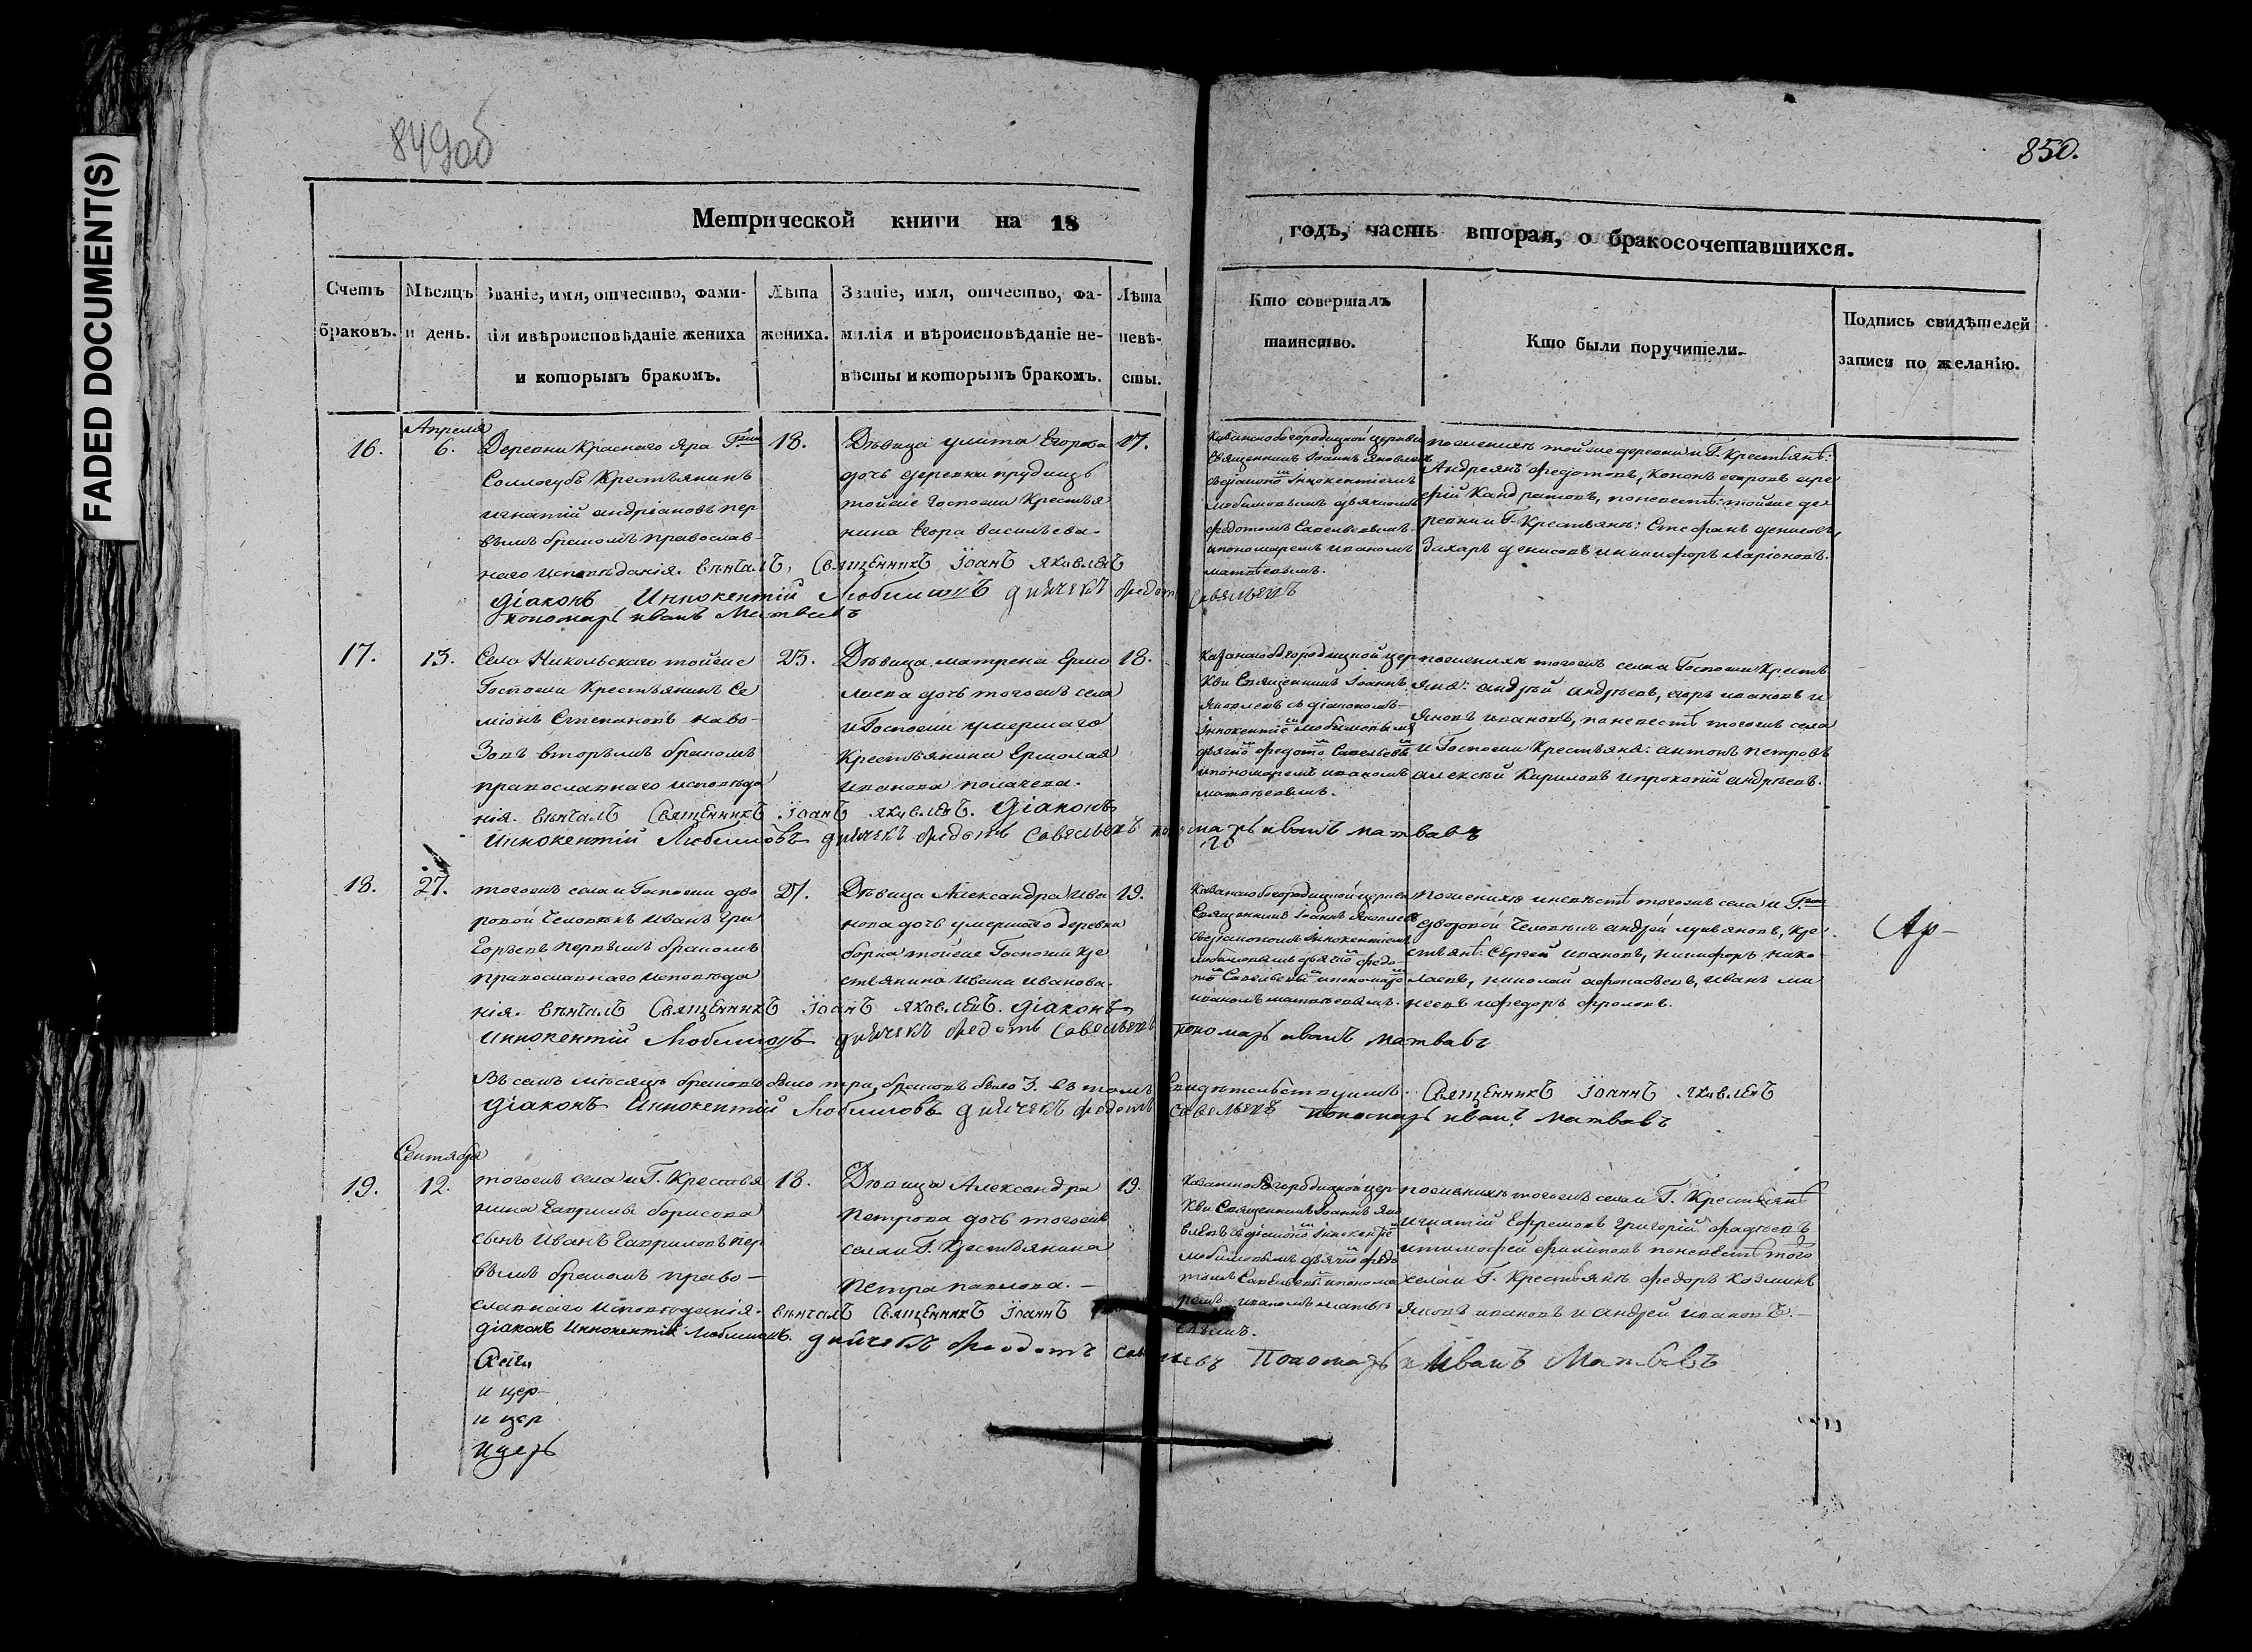 FADED DOCUMENT(S)
849об
850.
Метрической книги на 18
годъ, часть вторая, о бракосочетавшихся.
Счетъ
браковъ.
Мѣсяцъ
и день.
Званіе, имя, отчество, фами-
лія ивѣроисповѣданіе жениха
и которымъ бракомъ.
Лѣта
жениха.
Званіе, имя, отчество, фа-
милія и вѣроисповѣданіе не-
вѣсты и которымъ бракомъ.
Лѣта
невѣ-
сты.
Кто совершалъ
таинство.
Кто были поручители.
Подпись свидѣтелей
записи по желанію.
16.
Апреля
6.
Деревни Краснаго Яра Г.жи
Соллогубъ Крестьянинъ
игнатій андріановъ пер
вымъ бракомъ православ-
наго исповѣданія.
18.
Дѣвица улита Егорова
дочь деревни прудищъ
тойже Госпожи Крестья
нина Егора васильева.
17.
Казанскобогородицкой церкви
Священникъ Іоаннъ Яковлевъ
съдіакономъ Інокентіемъ
любимовымъ дьячкомъ
федотомъ Савельевымъ
ипономаремъ иваномъ
матвеевымъ.
пожених тойже деревни и Г. Крестьянѣ:
Андреянъ федотовъ, Кононъ егоровъ
фій Кандратовъ, поневестѣ: тойже де
ревни и Г. Крестьянѣ: Стефанъ денисовъ,
Захаръ денисовъ иникифоръ Ларіоновъ.
вѣнчалъ, Священникъ Іоанъ яковлевъ
діаконъ Иннокентій Любимовъ дьячекъ федотъ Савельевъ
пономарь иванъ Матвевъ
17.
13.
Села Никольскаго тойже
Госпожи Крестьянинъ Се
міонъ Степановъ наво-
зовъ вторымъ бракомъ
православнаго исповѣда
нія.
23.
Дѣвица матрена Ермо
лаева дочь тогожъ села
и Госпожи умершаго
Крестьянина Ермолая
иванова
18.
Казанскобогородицкой цер
кви Священникъ Іоаннъ
Яковлевъ съ діакономъ
Інокентіемъ любимовымъ
дьячкомъ федотомъ Савельевымъ
ипономаремъ иваномъ
матвеевымъ.
пожених тогожъ села Госпожи Кресть
яне: андрей андреевъ, егоръ ивановъ и
Яковъ ивановъ, поневестѣ тогожъ села
и Госпожи Крестьяне: антонъ петровъ
алексѣй Кириловъ ипрокопій андреевъ.
вѣнчалъ Священникъ Іоанъ яковлевъ. діаконъ
Иннокентій Любимовъ дьячекъ федотъ Савельевъ пономарь иванъ матвевъ
18.
27.
тогожъ села и Госпожи дво
ровой Человѣкъ иванъ Гри
горьевъ первымъ бракомъ
православнаго исповѣда
нія.
21.
Дѣвица Александра ива
нова дочь умершаго деревни
борка тойже Госпожи кре
стьянина ивана иванова.
19.
Казанскобогородицкой церкви
Священникъ Іоаннъ Яковлевъ
съдіакономъ Інокентіемъ
любимовымъ дьячкомъ федо-
томъ Савельевымъ ипономаремъ
иваномъ матвеевымъ.
пожених иневѣстѣ тогожъ села и Г.жи
дворовой Человѣкъ андрей лукьяновъ, кре
стьянѣ: Сергей ивановъ, никифоръ нико
лаевъ, николай афонасьевъ, иванъ ми
неевъ ифедоръ фроловъ.
вѣнчалъ Священникъ Іоанъ яковлевъ. діаконъ
Иннокентій Любимовъ дьячекъ федотъ Савельевъ пономарь иванъ матвевъ
Въ семъ мѣсяцѣ браковъ было три, браковъ было 3. въ томъ свидѣтельствуемъ. Священникъ Іоаннъ яковлевъ
діаконъ Иннокентій Любимовъ дьячекъ федотъ савельевъ пономарь иванъ матвевъ
19.
Сентября
12.
тогожъ села и Г. Крестья
нина Гаврилы борисова
сынъ иванъ Гавриловъ пер
вымъ бракомъ право-
славнаго исповѣданія.
18.
Дѣвица Александра
петрова дочь тогожъ
села и Г. Крестьянина
петра павлова.
19.
Казанскобогородицкой цер
кви Священникъ Іоаннъ Яко
влевъ съдіакономъ Інокентіемъ
любимовымъ дьячкомъ федо
томъ Савельевымъ ипонома
ремъ иваномъ матвѣ
евымъ.
пожених тогожъ села и Г. Крестьянѣ
игнатій Ефремовъ Григорій фадеевъ
итимофей филиповъ поневестѣ того
жсела и Г. Крестьянѣ федоръ Козминъ
Яковъ ивановъ и андрей ивановъ.
вѣнчалъ Священникъ Іоаннъ
діаконъ Иннокентій Любимовъ. дьячекъ Феодотъ Савельевъ Пономарь Иванъ Матвевъ
и цер
и цер
ицерь